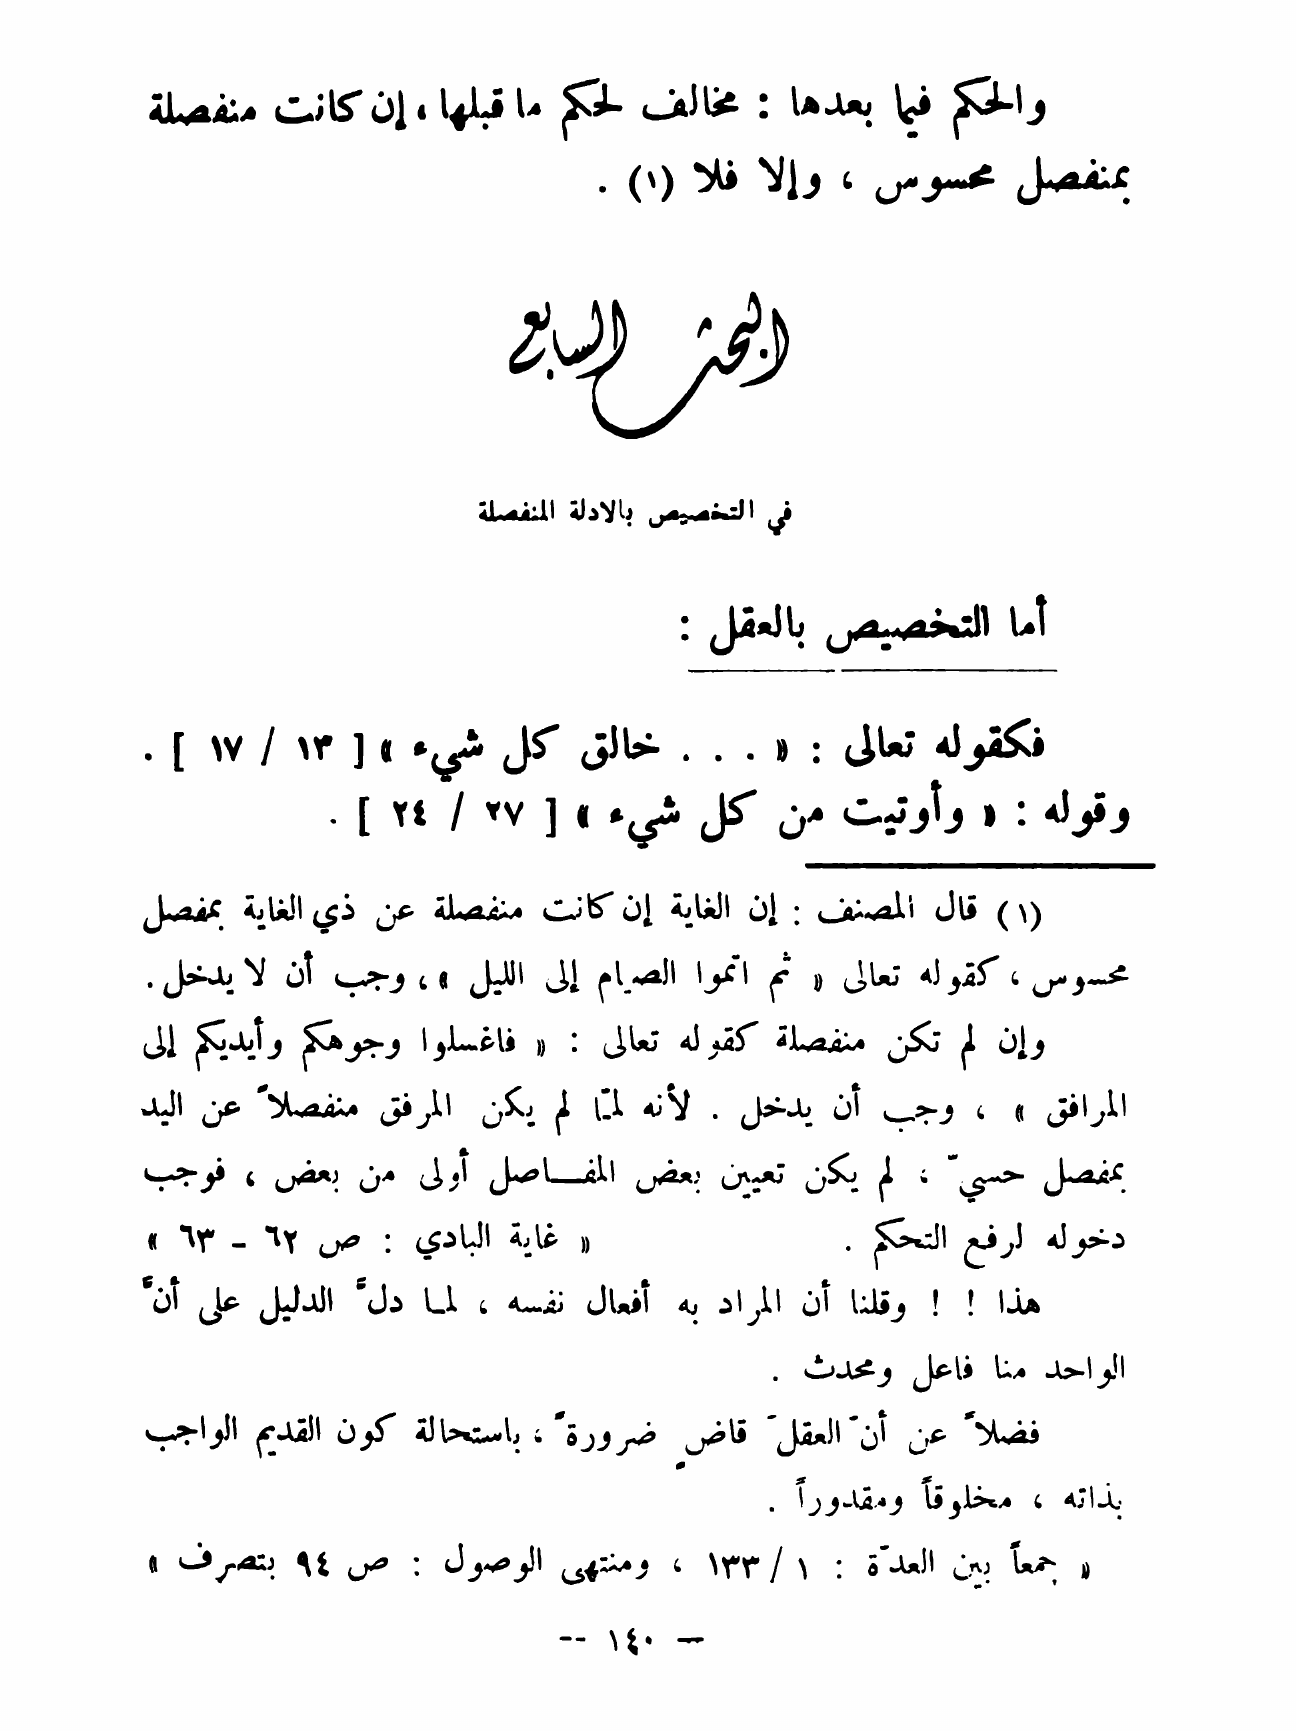 والحكم فيما بعدها : مخالف لحكم ما قبلها ، إن كانت منفصلة
بمنفصل محسوس ، وإلا فلا (١) .
البحث السابع
في التخصيص بالادلة المنفصلة
أما التخصيص بالعقل :
فكقوله تعالى : « . . . خالق كل شيء » [ ١٣ / ١٧ ] .
وقوله : « وأوتيت من كل شيء » [ ٢٧ / ٢٤ ] .
(١) قال المصنف : إن الغاية إن كانت منفصلة عن ذي الغاية بمفصل
محسوس ، كقوله تعالى « ثم اتموا الصيام إلى الليل » ، وجب أن لا يدخل .
وإن لم تكن منفصلة كقوله تعالى : « فاغسلوا وجوهكم وأيديكم إلى
المرافق » ، وجب أن يدخل . لأنه لمّا لم يكن المرفق منفصلاً عن اليد
بمفصل حسيّ ، لم يكن تعيين بعض المفاصل أولى من بعض ، فوجب
دخوله لرفع التحكم . « غاية البادي : ص ٦٢ - ٦٣ »
هذا ! ! وقلنا أن المراد به أفعال نفسه ، لما دلَّ الدليل على أنَّ
الواحد منا فاعل ومحدث .
فضلاً عن أنّ العقلَ قاضٍ ضرورةً ، باستحالة كون القديم الواجب
بذاته ، مخلوقاً ومقدوراً .
« جمعاً بين العدّة : ١ / ١٣٣ ، ومنتهى الوصول : ص ٩٤ بتصرف »
— ١٤٠ --